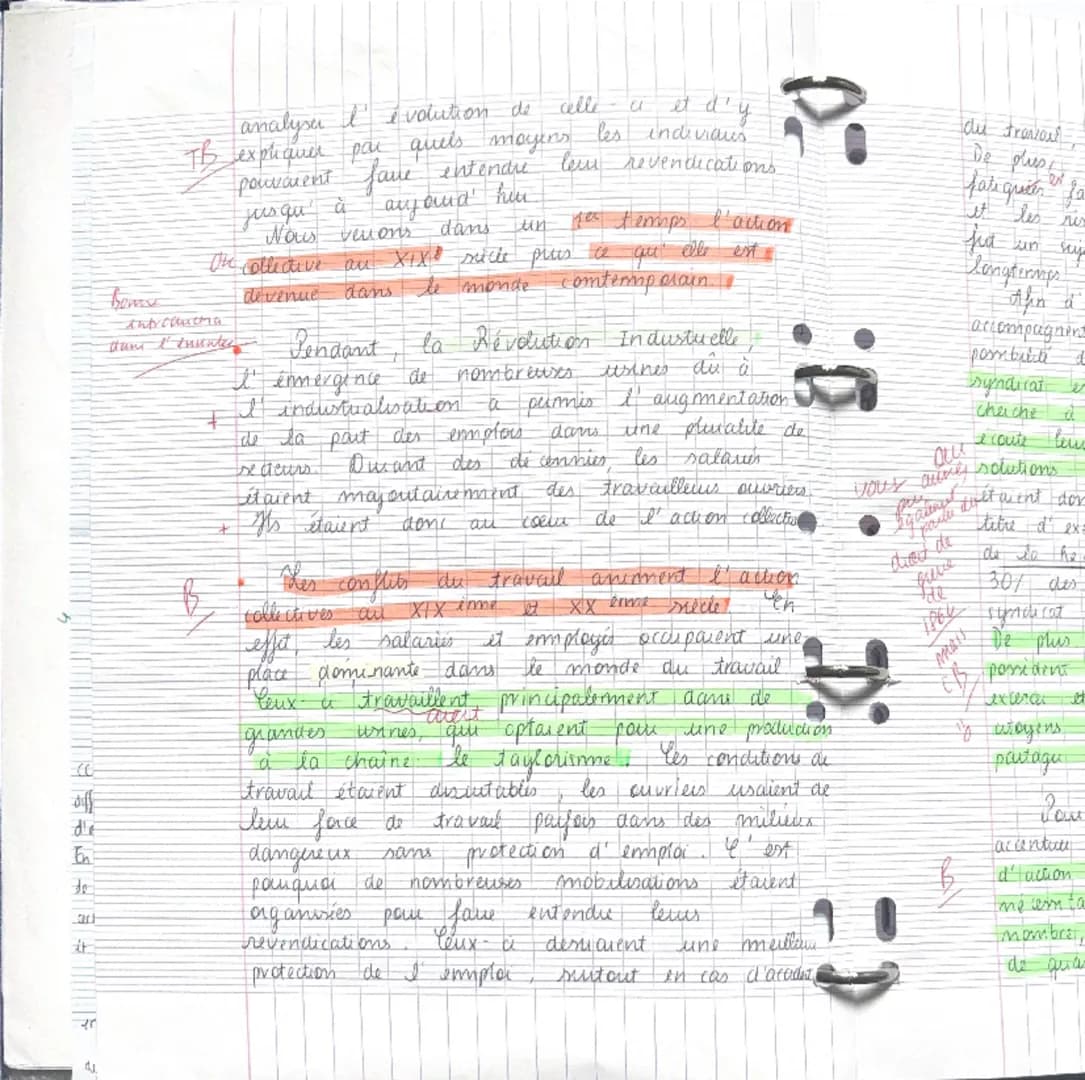 analyser l'évolution de celle-ci et d'y
TB
expliquer par quels moyens les individus
pouvaient faire entendre leur revendications
jusqu'à aujourd'hui
Nous verrons dans un 1er temps l'action
collective au XIXe siècle puis ce qu'elle est
devenue dans le monde comtemporain
Bonne
dans l'ensemble
Pendant, la Révolution Industrielle,
l'émmergence de nombreuses usines dû à
l'industrialisation a permis l'augmentation
+
de la part des emplois dans une pluralité de
secteurs. Durant des décennies, les salariés
étaient majoritairement des travailleurs ouvriers.
+
Ils étaient donc au coeur de l'action collective
Les conflits du travail animent l'action
B
collectives au XIXème et XXème siècle. En
effet, les salariés et employés occupaient une
place dominante dans le monde du travail
Ceux-ci travaillent principalement dans de
aient
grandes usines, qui optaient pour une production
à la chaîne: le taylorisme. Les conditions de
travail étaient discutables, les ouvriers usaient de
leur force de travail parfois dans des milieux
dangereux sans protection d'emploi. C'est
pourquoi de nombreuses mobilisations étaient
organisées pour faire entendre leurs
revendications. Ceux-ci désiraient une meilleure
protection de l'emploi, surtout en cas d'accident
du travail,
De plus,
et les
longtemps
Afin d'
accompagnent
syndicat
cherche à
écoute leurs
solutions
vous auriez
pu
également
parler du
droit de
grève
de
1864
mais
TB
étaient
titre d'
de la
30% des
syndicat
De plus
possèdent
exercer
citoyens
partagu
Pour
accentuer
B
d'action
nombre,
de
En